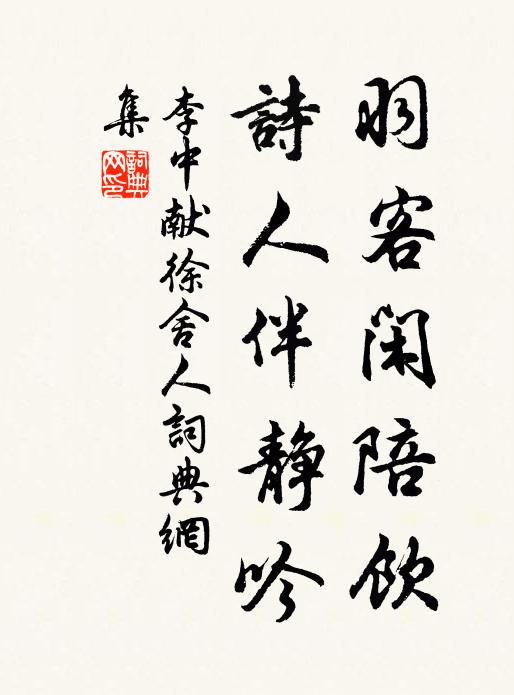 羽客闲陪飲
詩人伴静吟
李中献徐舍人詞典網
集
詞典網印